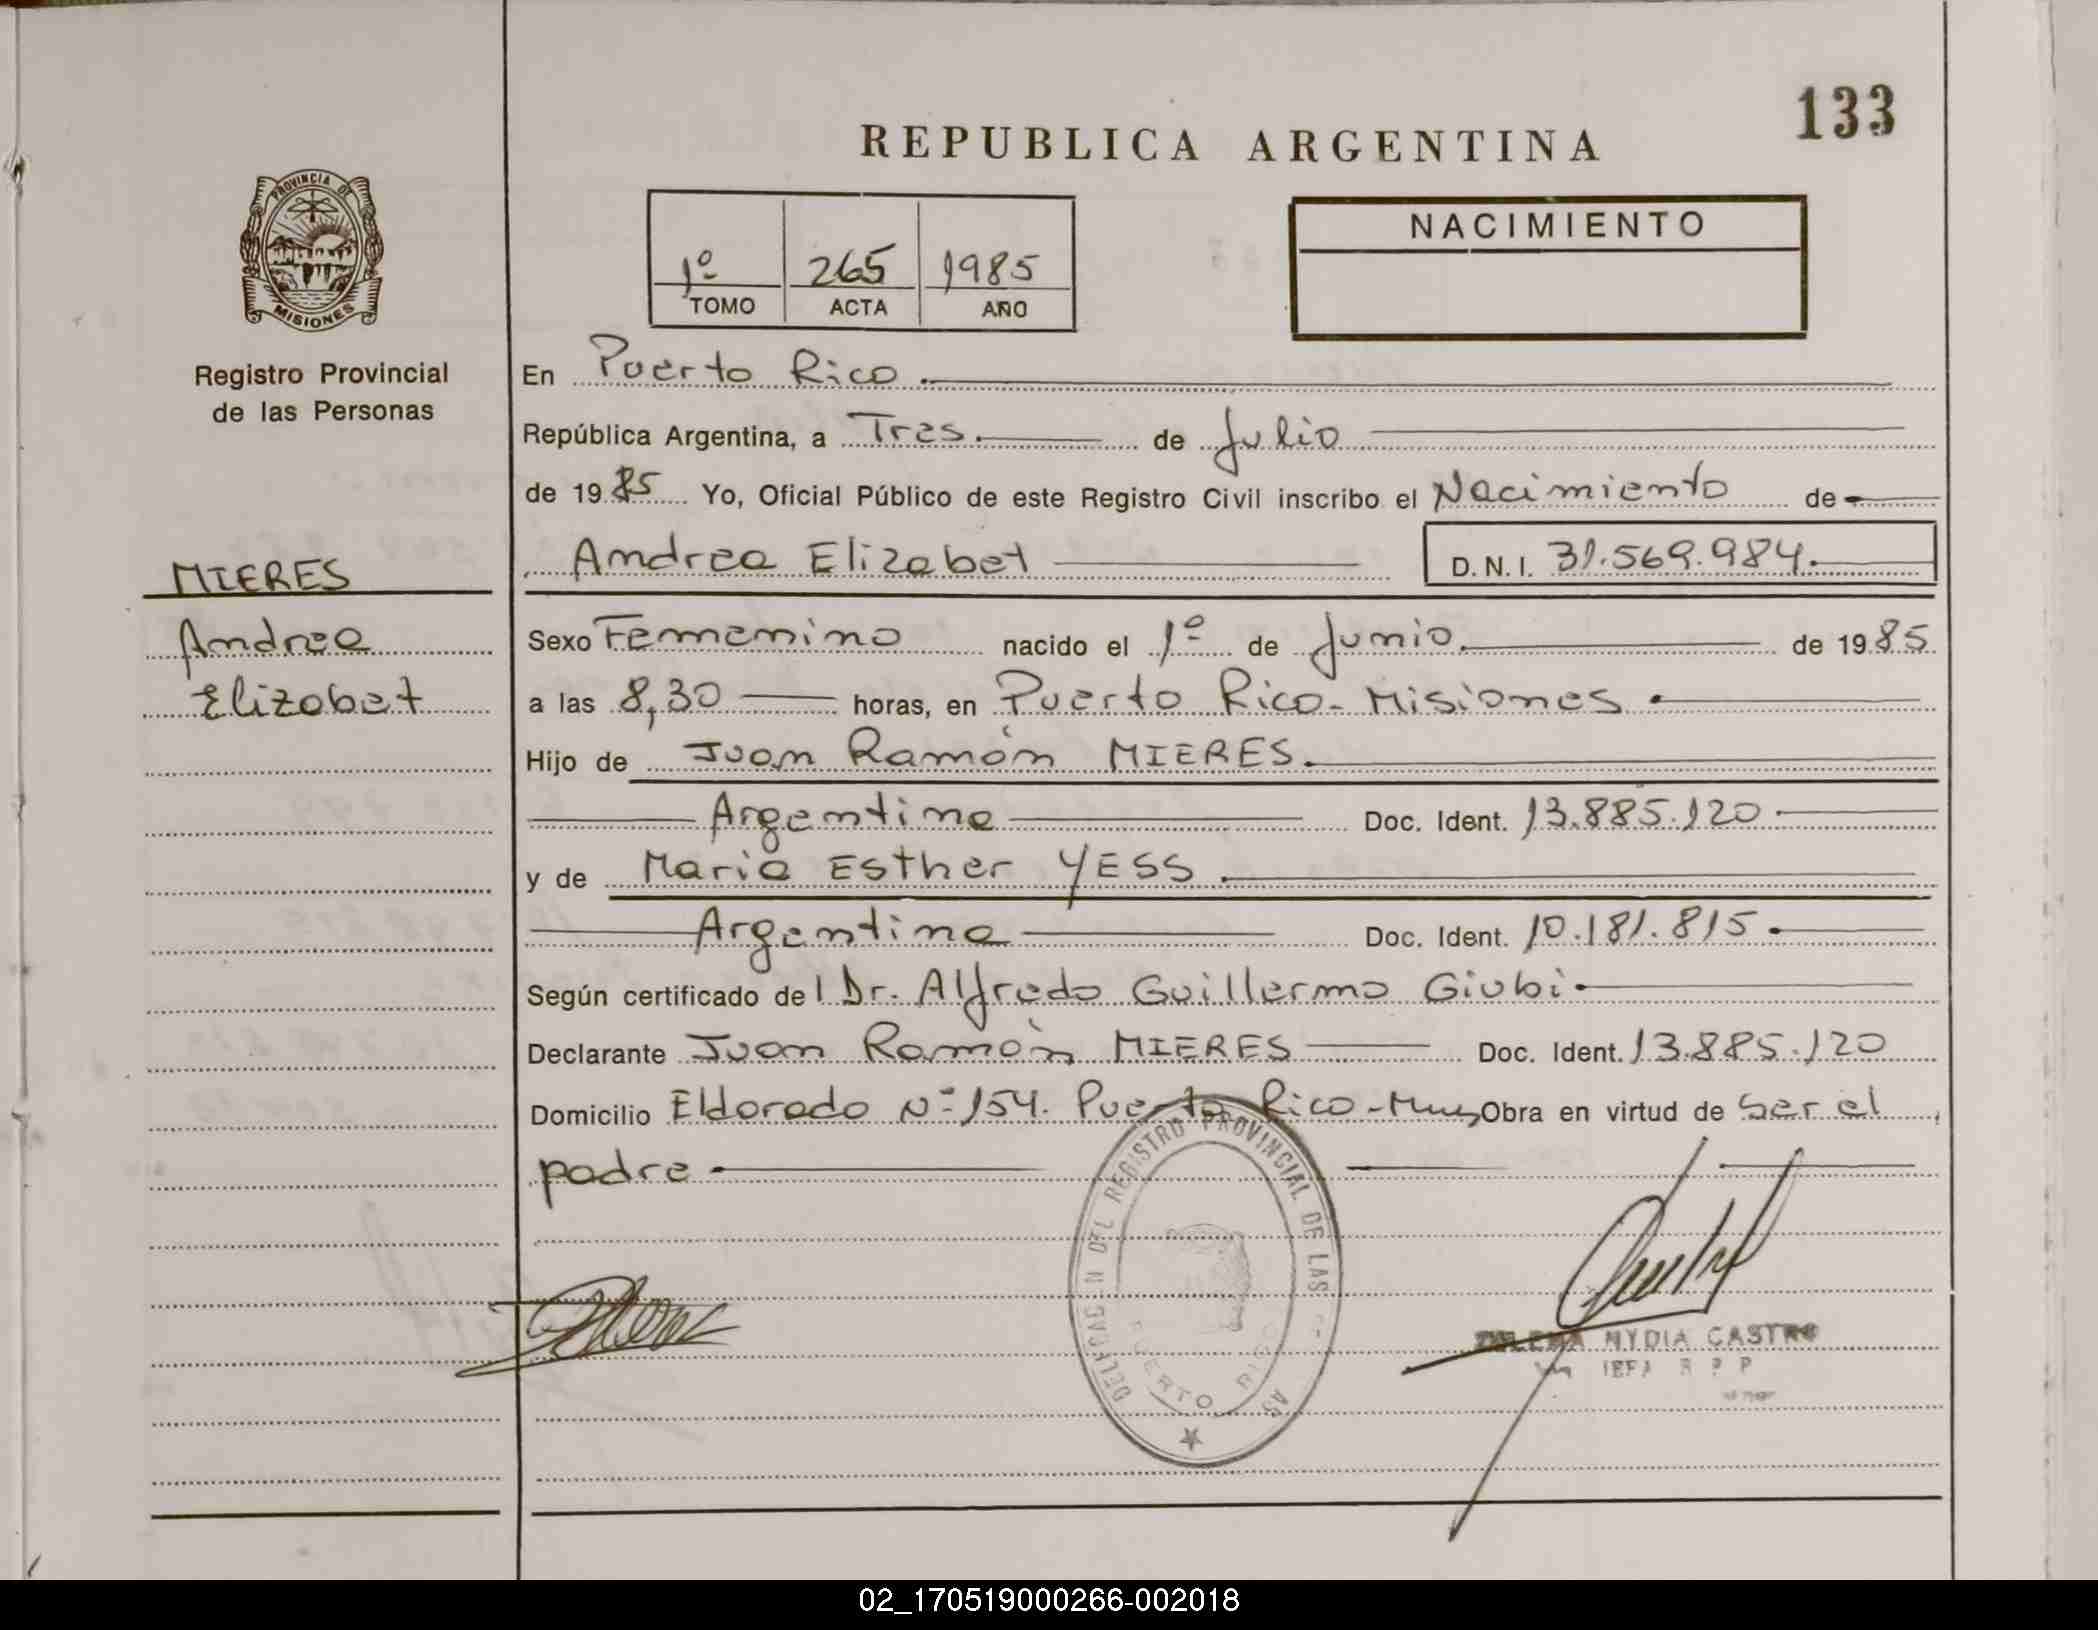 133
REPUBLICA ARGENTINA
PROVINCIA DE
MISIONES
Registro Provincial
de las Personas
1º 265 1985
TOMO ACTA AÑO
NACIMIENTO
En Puerto Rico.
República Argentina, a Tres. de Julio
de 1985 Yo, Oficial Público de este Registro Civil inscribo el Nacimiento de
MIERES
Andrea
Elizabet
Andrea Elizabet D.N.I. 31.569.984.
Sexo Femenino nacido el 1º de Junio. de 1985.
a las 8,30 horas, en Puerto Rico - Misiones.
Hijo de Juan Ramón MIERES.
Argentina Doc. Ident. 13.885.120
y de Maria Esther YESS.
Argentina Doc. Ident. 10.181.815.
Según certificado del Dr. Alfredo Guillermo Giubi.
Declarante Juan Ramón MIERES Doc. Ident. 13.885.120
Domicilio Eldorado Nº 154. Puerto Rico - Obra en virtud de ser el
padre
REGISTRO PROVINCIAL DE LAS
PUERTO RICO
NYDIA CASTRO
02_170519000266-002018